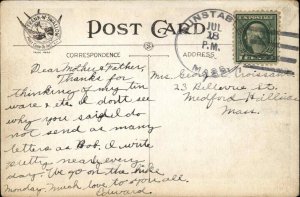 POST CARD
DUNSTAB
JUL
18
P.M.
MASS.
CORRESPONDENCE
ADDRESS
Dear Mother & Father,
Thanks for
thinking of my tin
ware & etc I don't see
why you said I do
not send as many
letters as Bob. I write
pretty nearly every
day. We go on the hike
Monday. Much love to you all.
Edward.
Mrs. George Croissan
23 Bellevue St.
Medford Hillside
Mass.